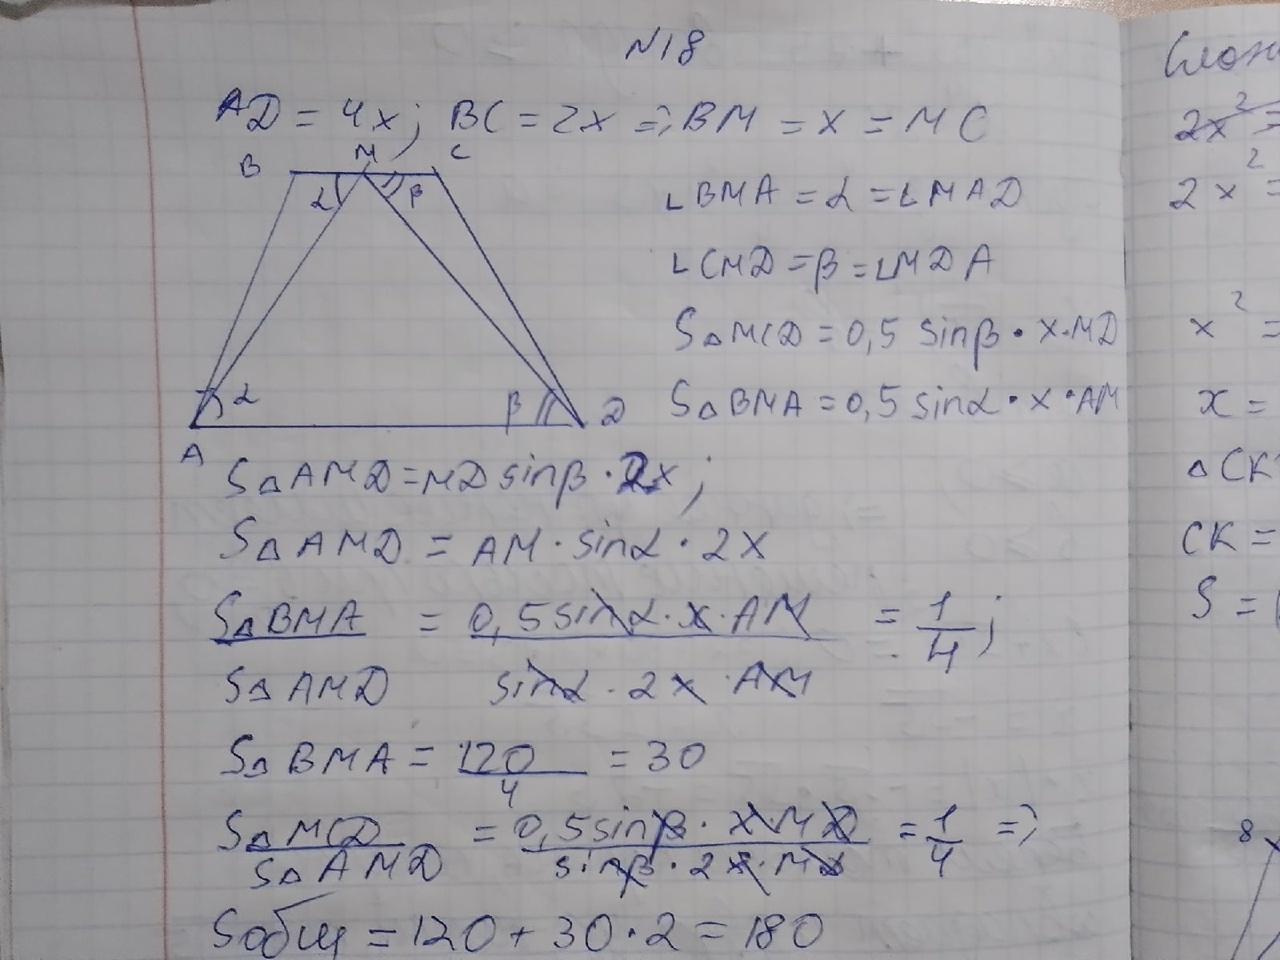 N18
AD = 4x; BC = 2x => BM = x = MC
B M C
∠BMA = α = ∠MAD
α β
∠CMD = β = ∠MDA
S△MCD = 0,5 sinβ · x·MD
α β D
S△BMA = 0,5 sinα · x · AM
A
S△AMD = MD sinβ · 2x;
S△AMD = AM · sinα · 2x
S△BMA / S△AMD = 0,5 sinα · x · AM / sinα · 2x · AM = 1/4;
S△BMA = 120/4 = 30
S△MCD / S△AMD = 0,5 sinβ · x·MD / sinβ · 2x · MD = 1/4 =>
Sобщ = 120 + 30·2 = 180
2x² =
2x² =
x² =
x =
CK =
S =
8